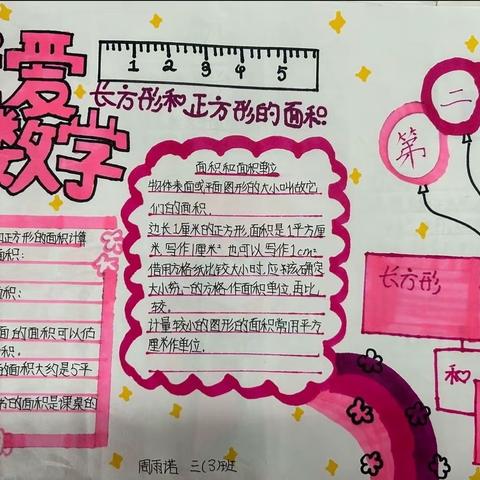 爱
数学
1 2 3 4 5
长方形和正方形的面积
第
二
面积和面积单位
物体表面或平面图形的大小叫做它
们的面积。
边长1厘米的正方形,面积是1平方厘
米,写作1厘米²,也可以写作1cm²
借用方格纸比较大小时,应该确定
大小统一的方格作面积单位,再比
较。
计量较小的图形的面积常用平方
厘米作单位。
正方形的面积计算
面积:
面积可以估
积。
面积大约是5平
的面积是课桌的
长方形
和
周雨诺 三(3)班